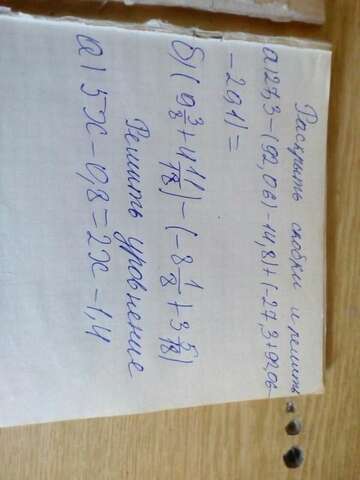 Раскрыть скобки и решить
а) 27,3-(92,06)-14,8)+(-27,3+92,06-
-29,1)=
б) (9 3/8 + 4 11/18) - (-8 1/8 + 3 5/18)
Решить уровнение
а) 5х-0,8=2х-1,4